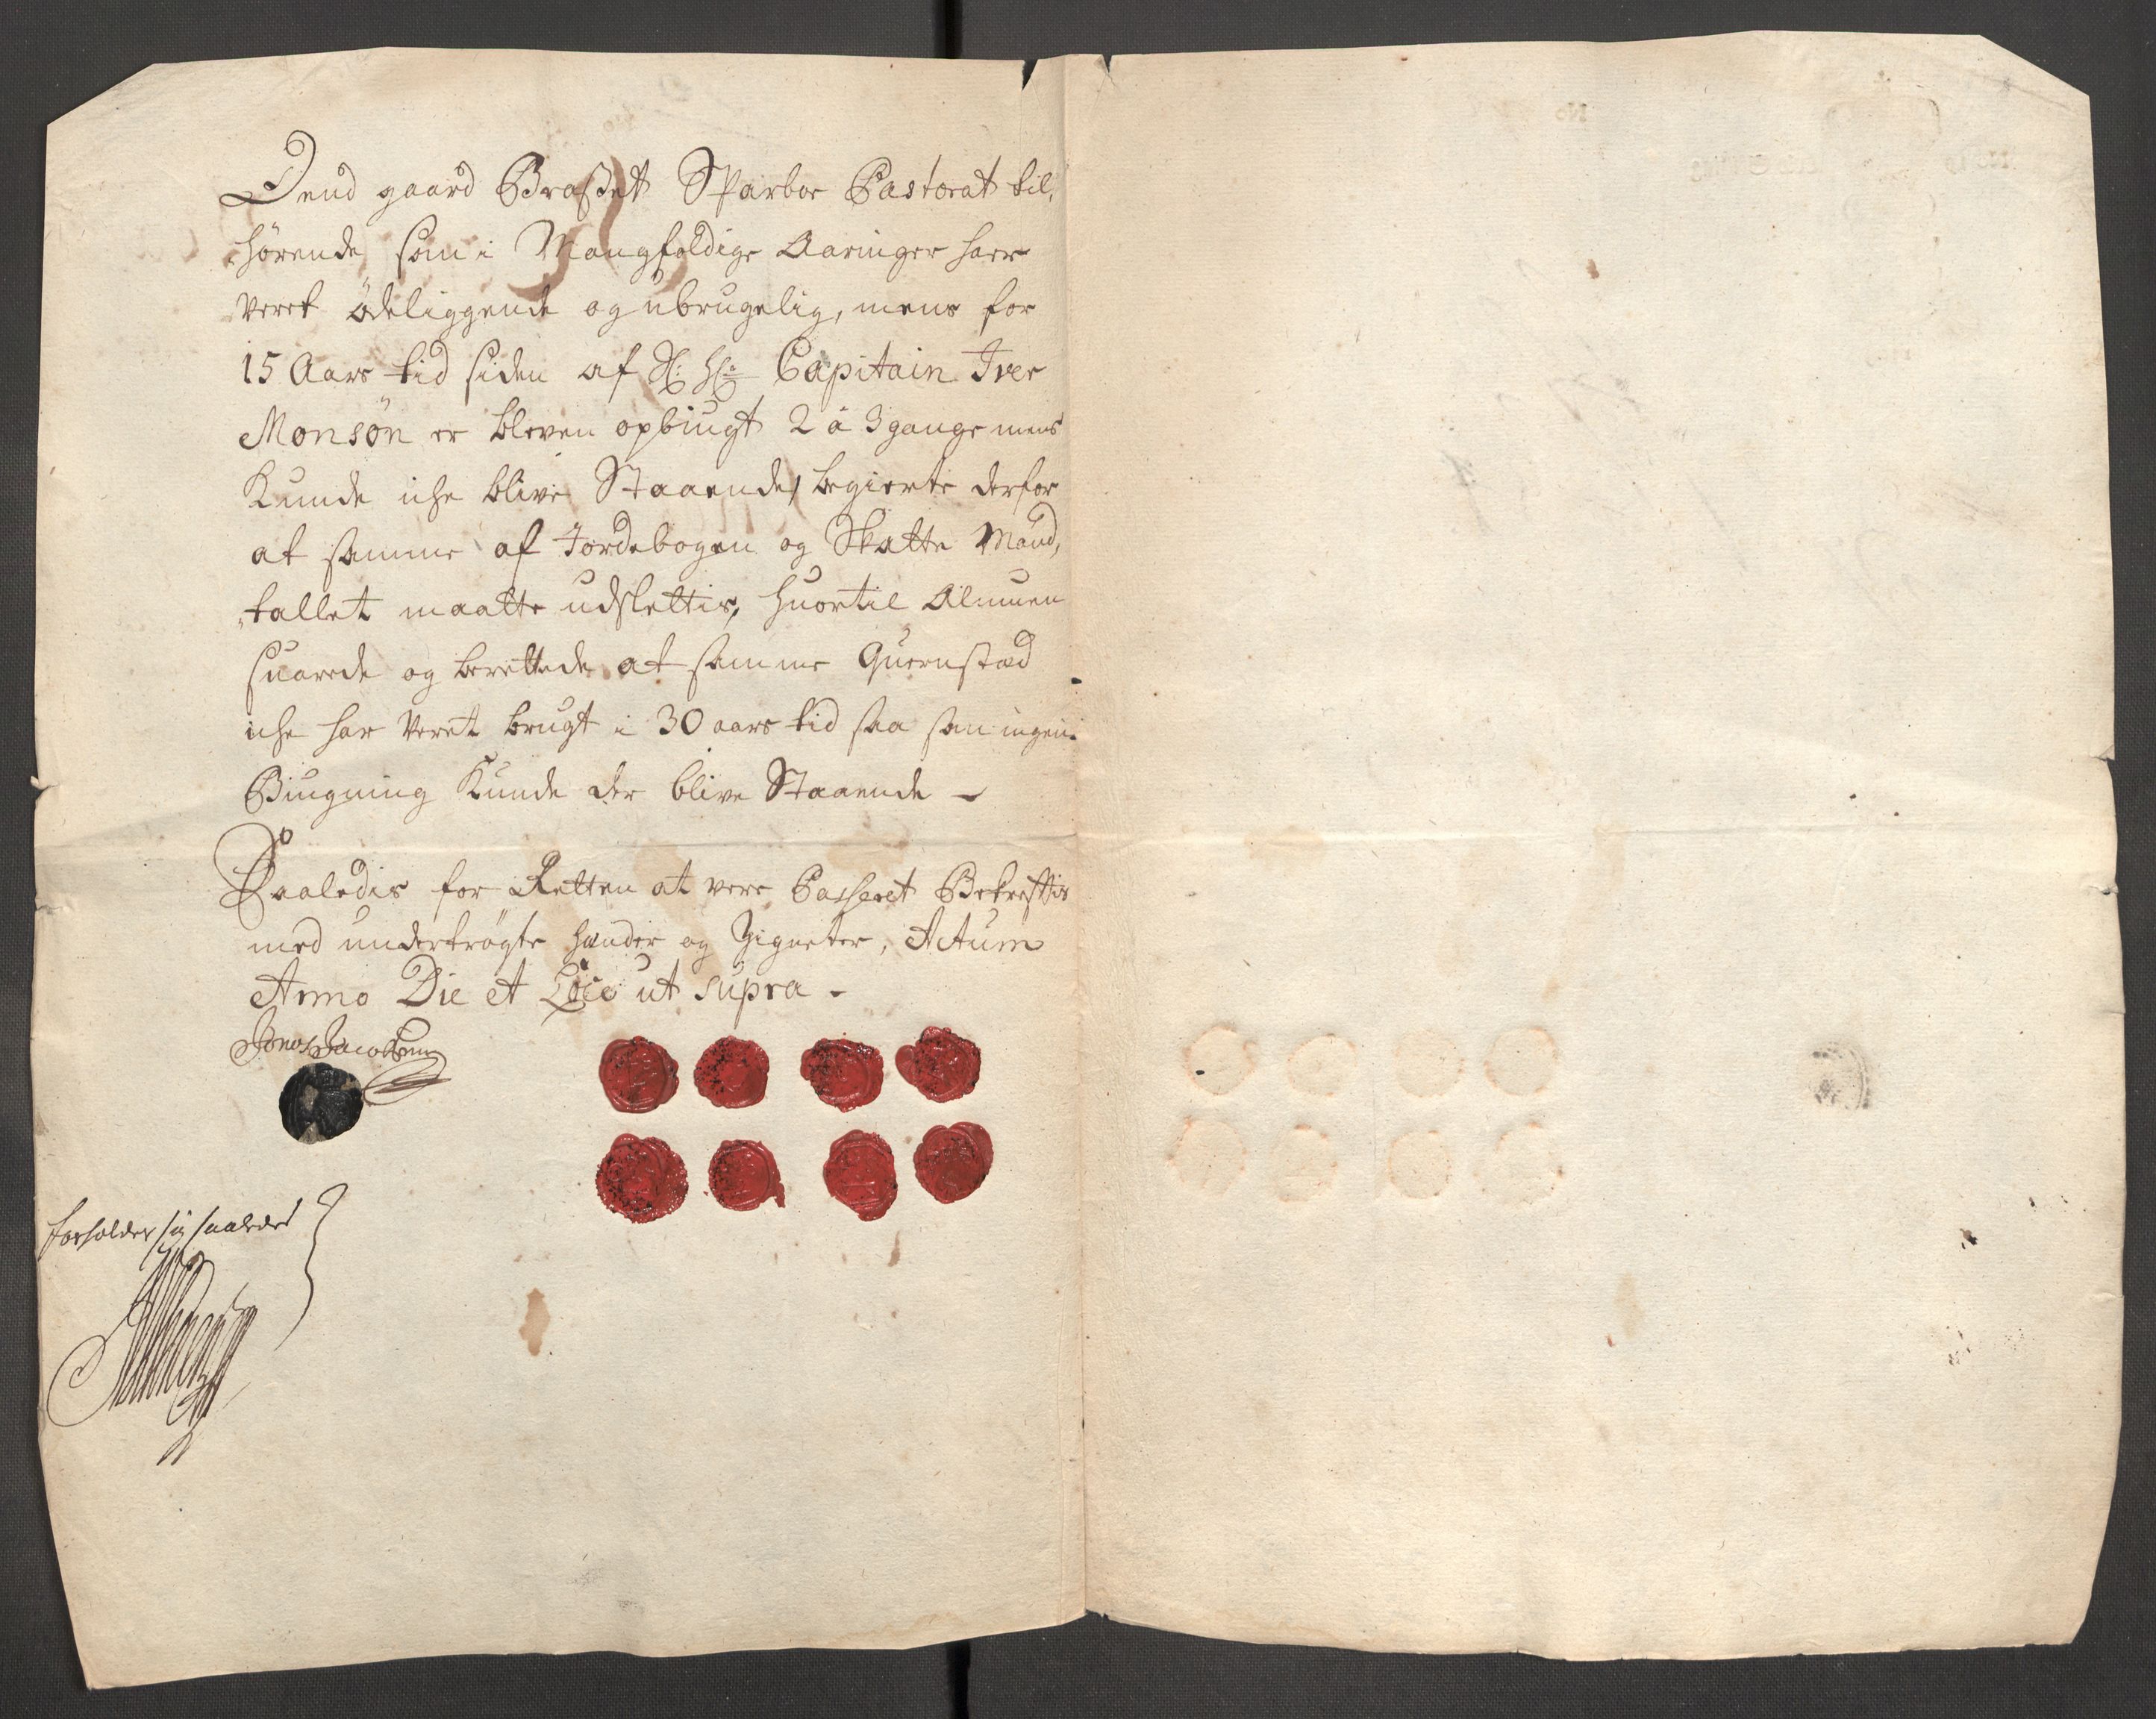 Dend gaard Braset Sparboe Pastorat til,
hørende, som i Mangfoldige Aaringer haer
veret ödeliggende og ubrugelig, mens for
15 Aars tid siden af Sl: Hr: Capitain Iver
Monsøn er bleven opbiugt 2 à 3 gange mens
Kunde iche blive Staaende, begierte derfor
at samme af Jordebogen og Skatte Mand,
tallet maatte udslettis, huortil Almuen
suarede og berettede at samme Quernstæd
iche har veret brugt i 30 aars tid saa som ingen
Biugning Kunde der blive Staaende -
Saaledis for Retten at vere Passeret Bekreftis
med undertrögte hænder og Zigneter, Actum
Anno Die et Loco ut supra -
Jonas Jacobsen
forholder sig saaledes